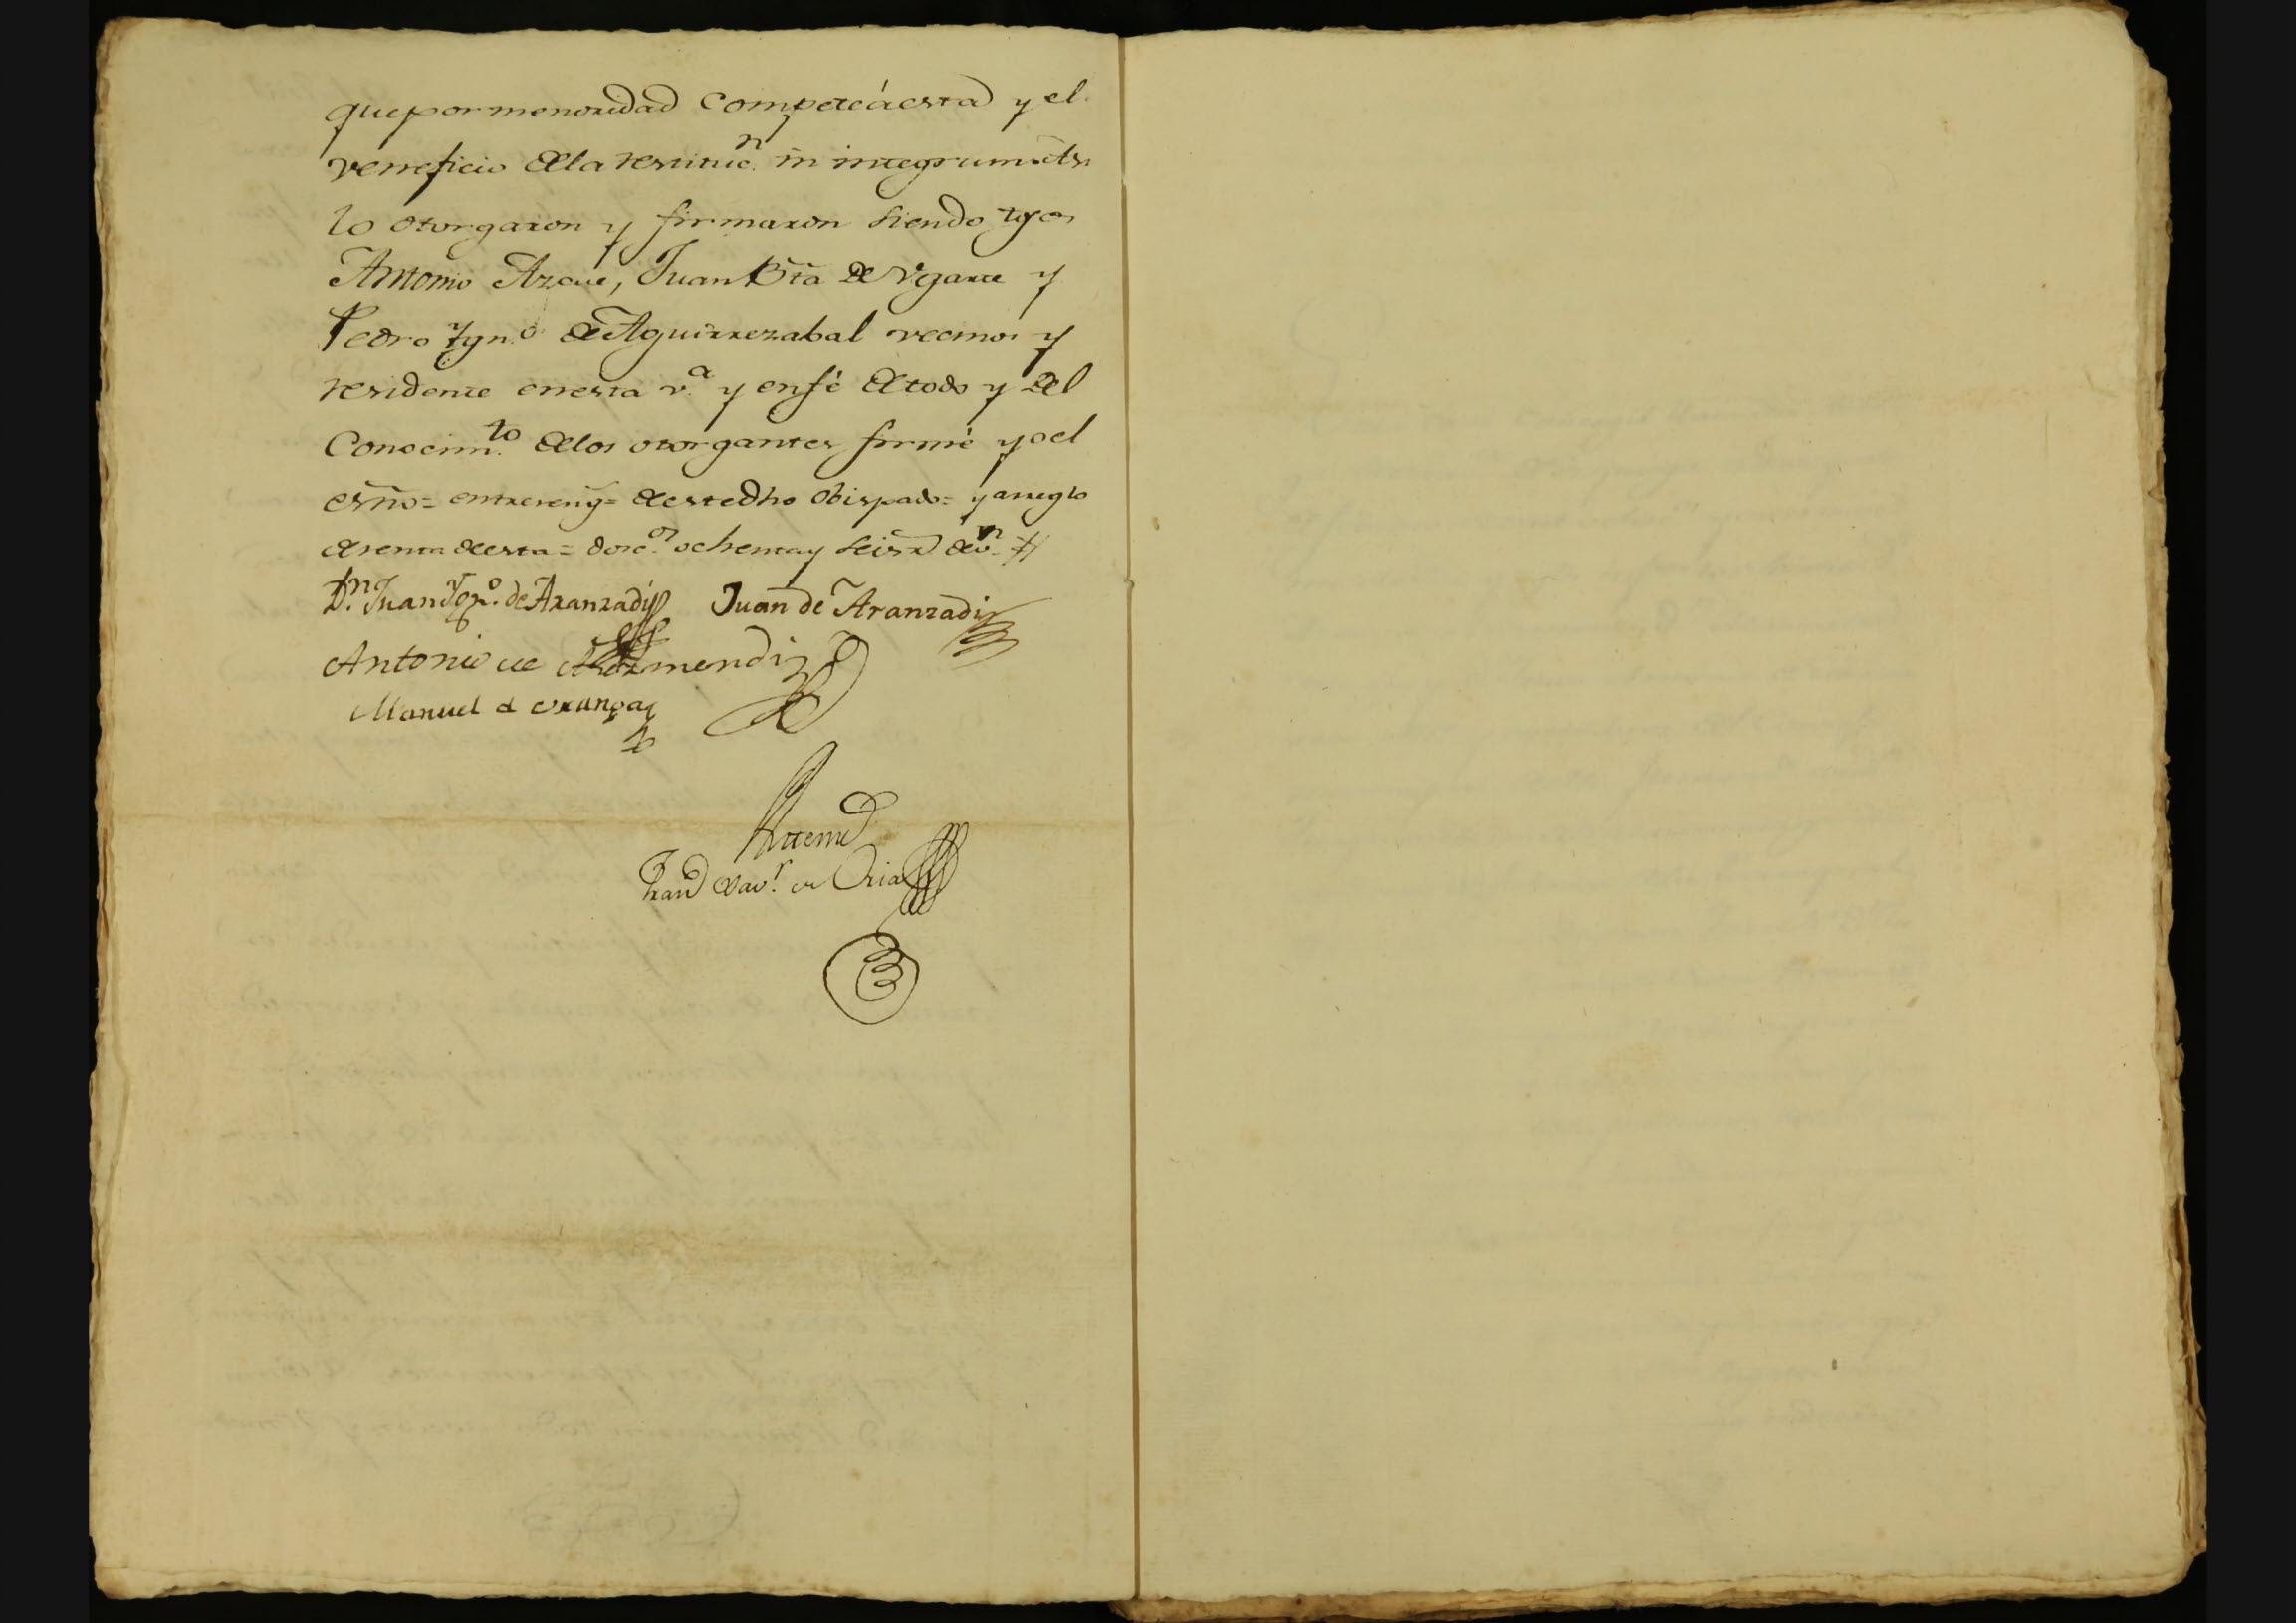 que por menoridad compete á esta y el
veneficio de la restituc.n in integrum
lo otorgaron y firmaron siendo tgos
Antonio Azcue, Juan Bta de Vgarte y
Pedro Ygn.o de Aguirrezabal vecinos y
residente en esta v.a y en fé de todo y del
Conocim.to de los otorgantes firmé yo el
esño = entrereng = de este dho Obispado = y arreglo
de renta de esta = ochenta y seis r de v.n
D.n Juan Ygn.o de Aranzadi Juan de Aranzadi
Antonio de
Manuel de
Ante mi
Fran Xav.r de Oria